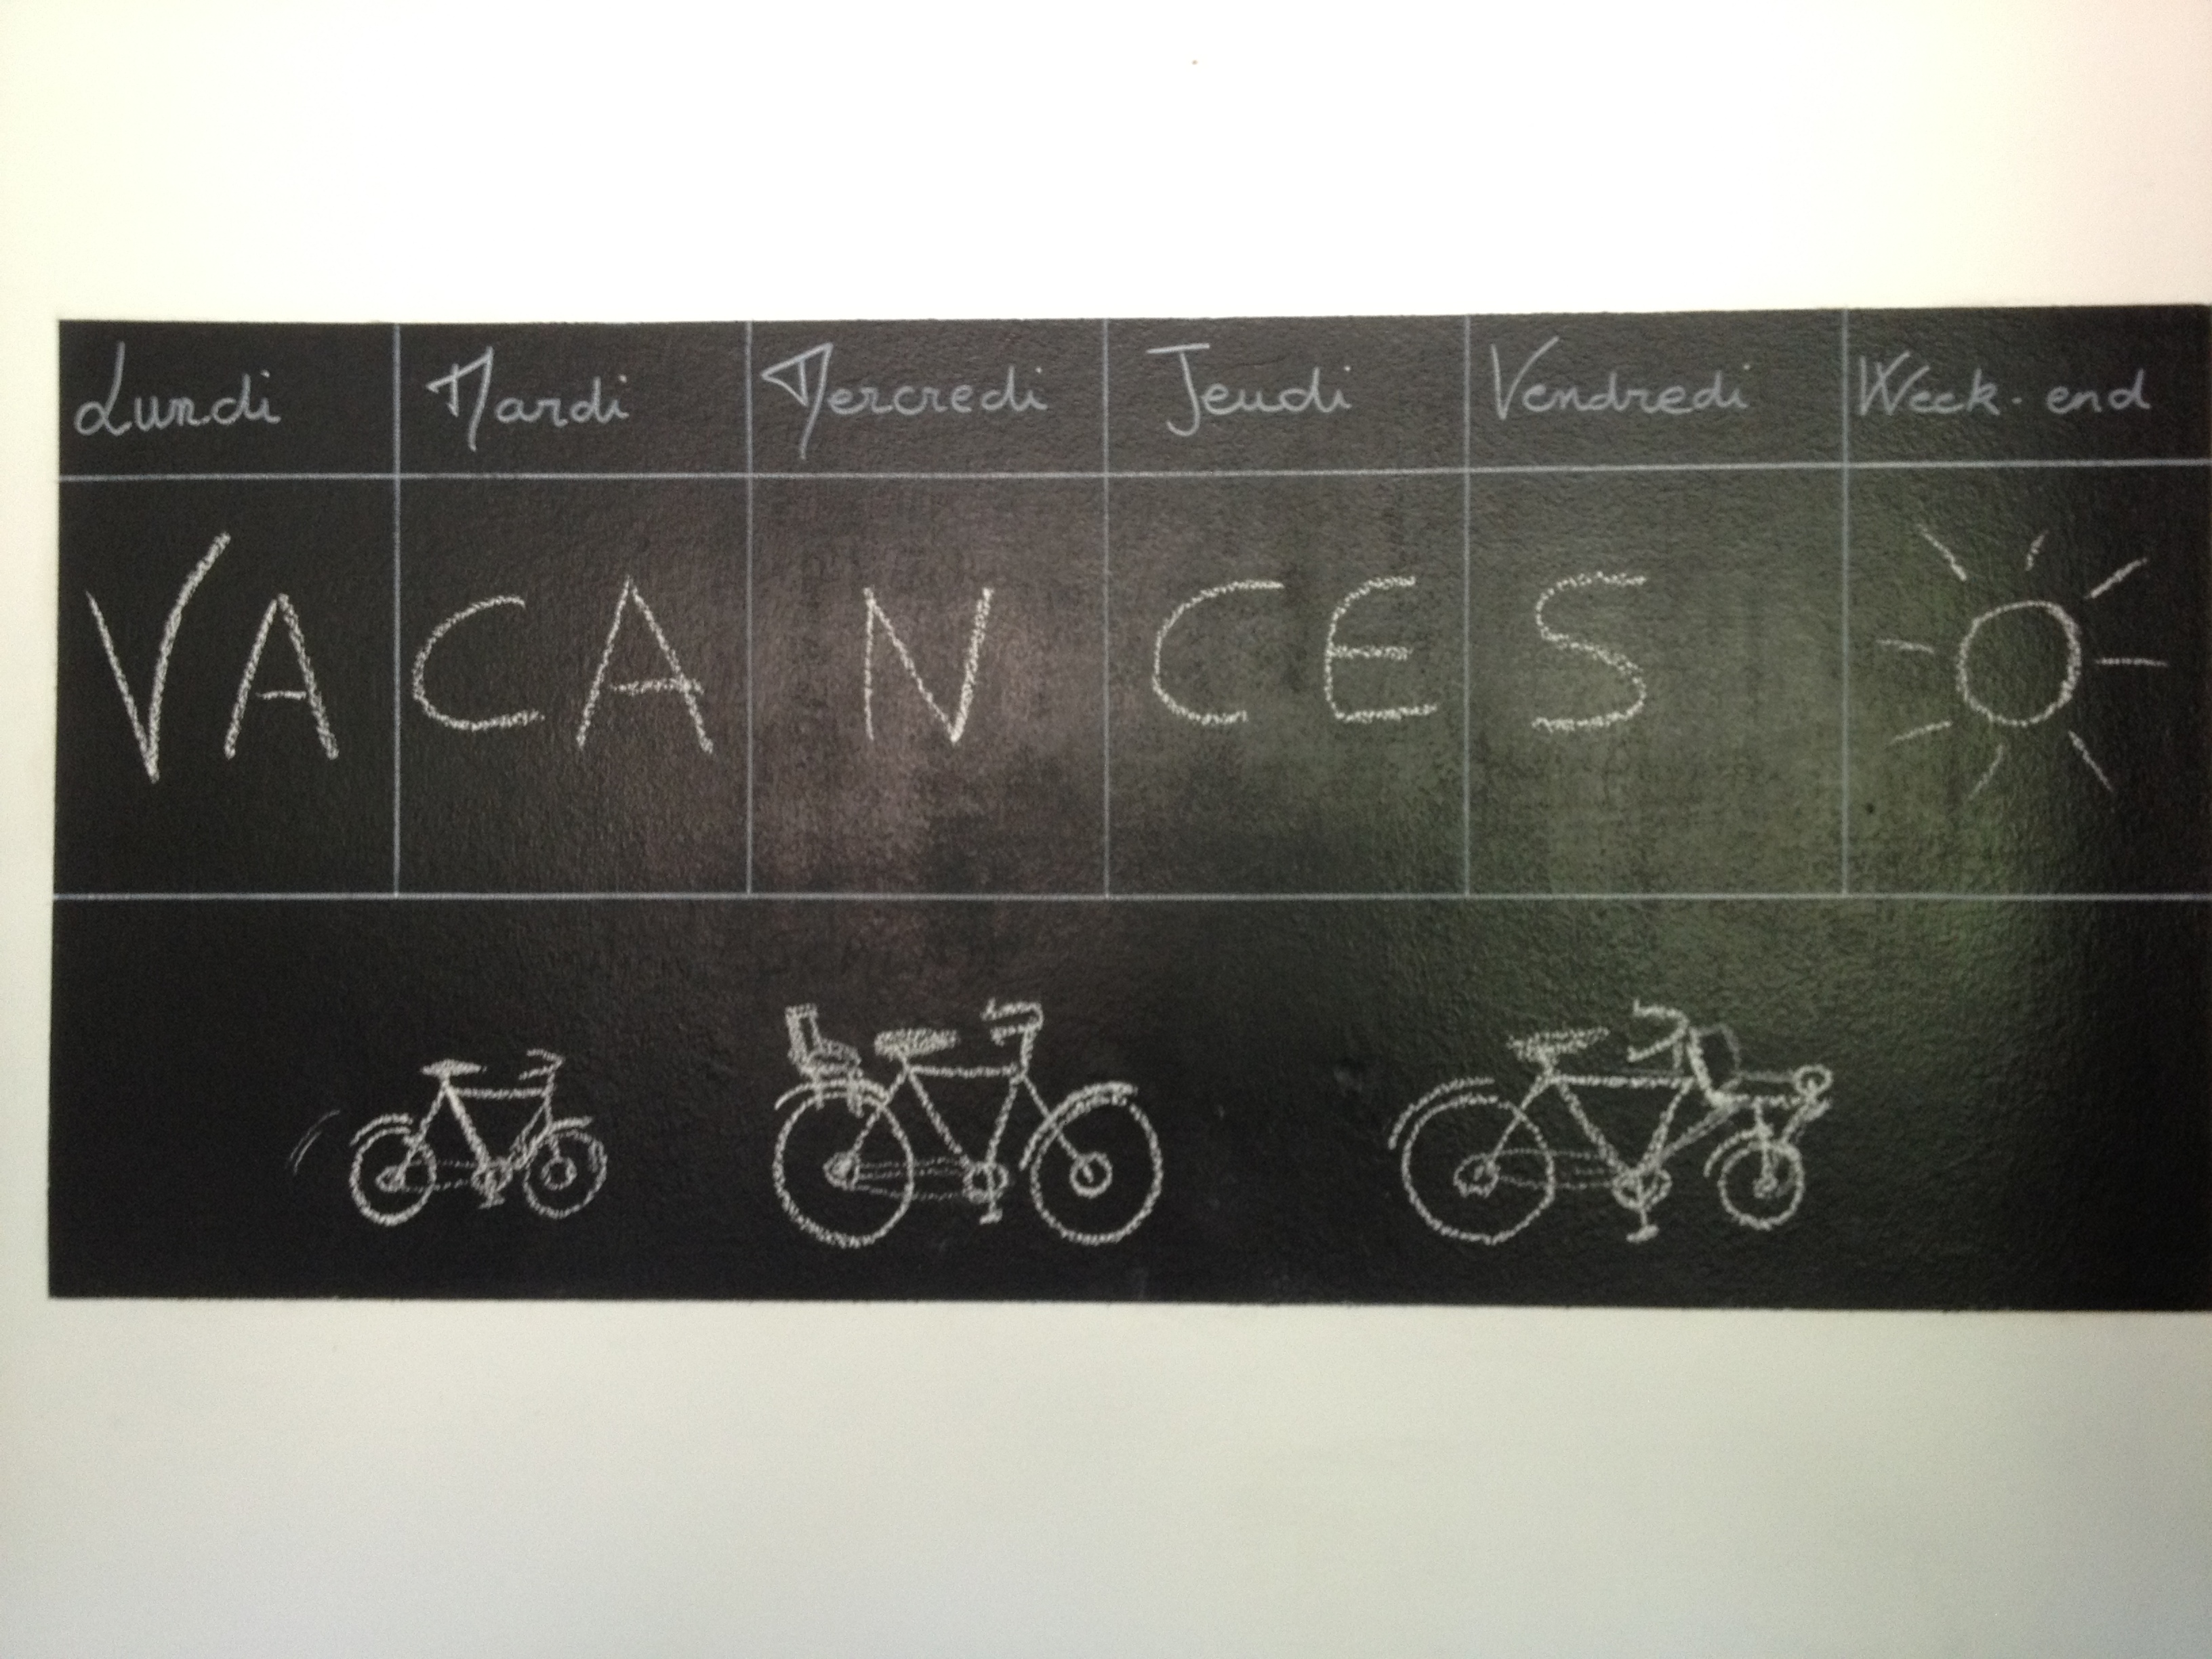 Lundi Mardi Mercredi Jeudi Vendredi Week-end
VACANCES